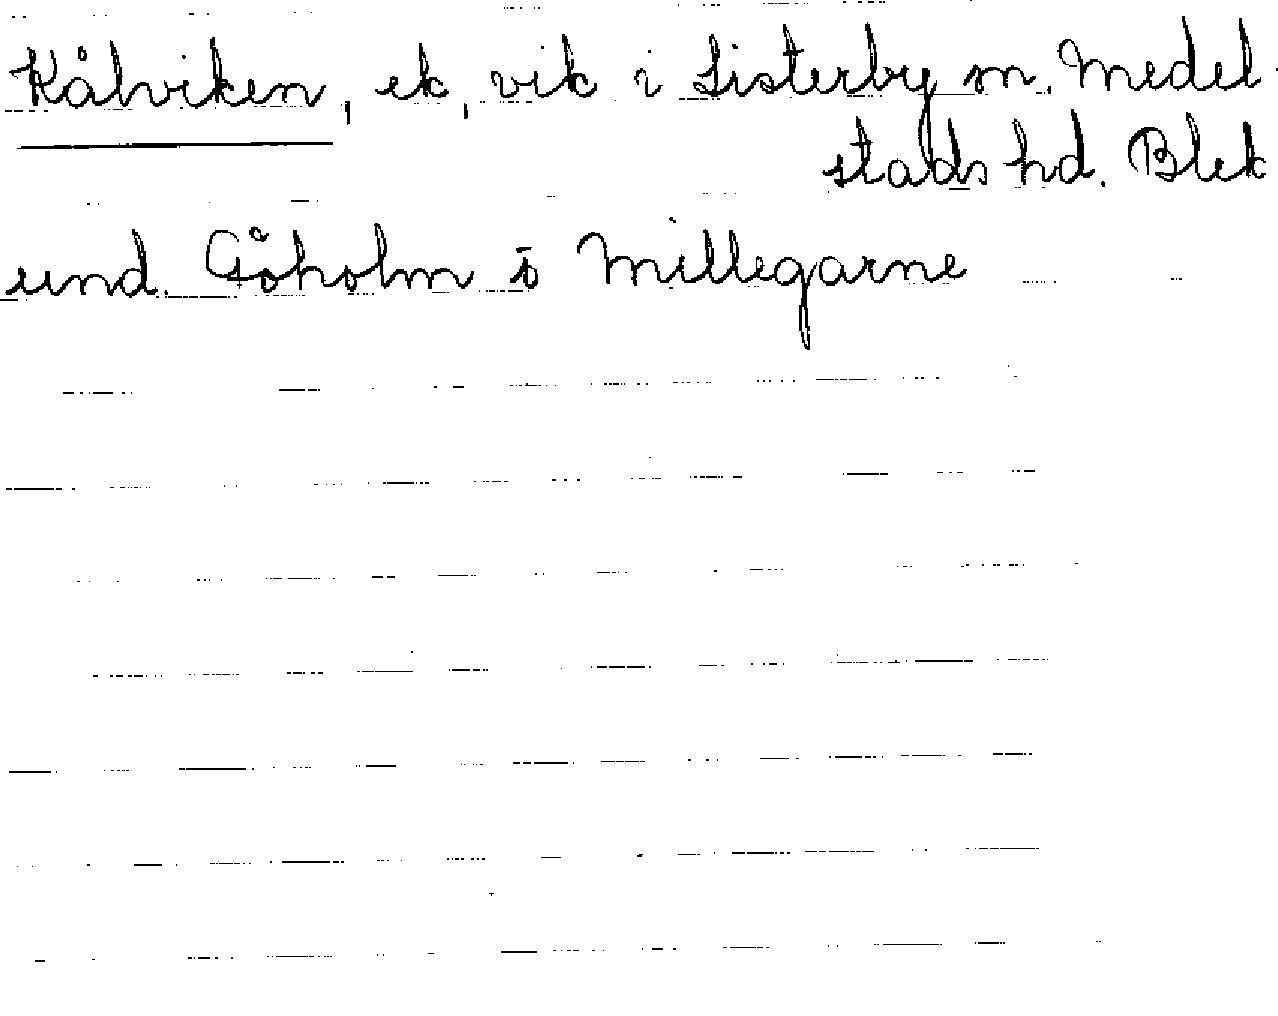 Kålviken, ek, vik i Listerby sn. Medel-
stads hd. Blek
und. Göholm å Millegarne